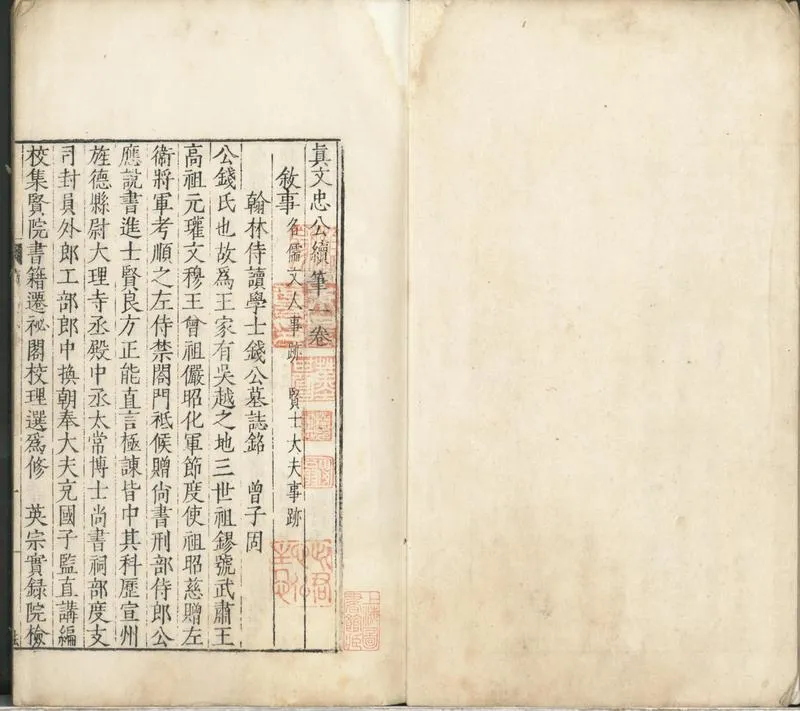 真文忠公續筆一卷
敘事 名儒文人事跡 賢士大夫事跡
翰林侍讀學士錢公墓誌銘 曾子固
公錢氏也故爲王家有吳越之地三世祖鏐號武肅王
高祖元瓘文穆王曾祖儼昭化軍節度使祖昭慈贈左
衛將軍考順之左侍禁閤門祗候贈尚書刑部侍郎公
應說書進士賢良方正能直言極諫皆中其科歷宣州
旌德縣尉大理寺丞殿中丞太常博士尚書祠部度支
司封員外郎工部郎中換朝奉大夫充國子監直講編
校集賢院書籍遷祕閣校理選爲修 英宗實録院檢
上海圖書館藏